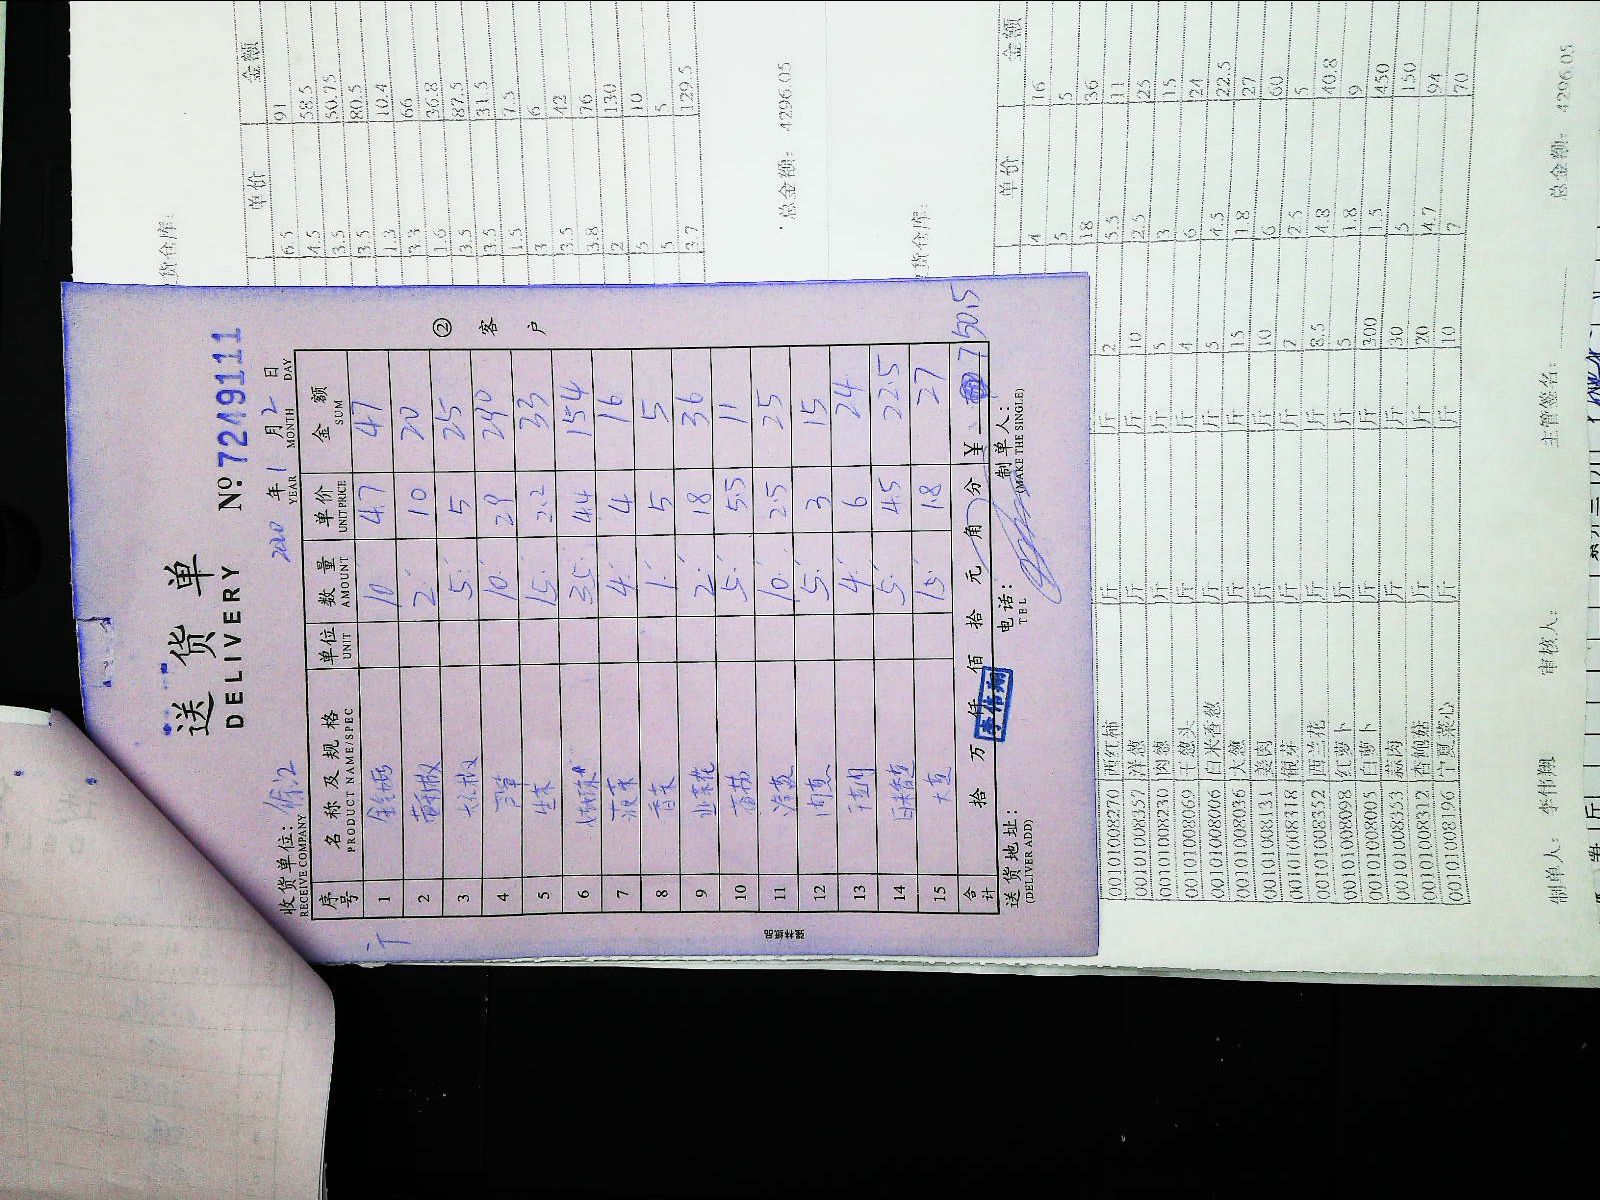 送货单
DELIVERY
No 7249111
收货单位：
RECEIVE COMPANY
2020 年 1 月 2 日
YEAR MONTH DAY
序号 名称及规格 单位 数量 单价 金额
PRODUCT NAME/SPEC UNIT AMOUNT UNIT PRICE SUM
1 10 4.7 47
2 2 10 20
3 5 5 25
4 芦笋 10 29 290
5 生菜 15 2.2 33
6 35 4.4 154
7 菠菜 4 4 16
8 香菜 1 5 5
9 韭菜花 2 18 36
10 5 5.5 11
11 洋葱 10 2.5 25
12 肉葱 5 3 15
13 4 6 24
14 5 4.5 22.5
15 大葱 15 1.8 27
合计 拾 万 仟 佰 拾 元 角 分 ¥ 750.5
李伟翔
送货地址：
(DELIVER ADD)
电话：
TEL
制单人：
(MAKE THE SINGLE)
② 客户
货仓库：
单价 金额
6.5 91
4.5 58.5
3.5 50.75
3.5 80.5
1.3 10.4
3.3 66
1.6 36.8
3.5 87.5
3.5 31.5
1.5 7.5
3 6
3.5 42
3.8 76
2 130
5 10
5 5
3.7 129.5
总金额： 4296.05
货仓库：
单价 金额
4 16
5 5
18 36
00101008270 西红柿 斤 斤 2 5.5 11
00101008357 洋葱 斤 斤 10 2.5 25
00101008230 肉葱 斤 斤 5 3 15
00101008069 干葱头 斤 斤 4 6 24
00101008006 白米香葱 斤 斤 5 4.5 22.5
00101008036 大葱 斤 斤 15 1.8 27
00101008131 姜肉 斤 斤 10 6 60
00101008318 银芽 斤 斤 2 2.5 5
00101008352 西兰花 斤 斤 8.5 4.8 40.8
00101008098 红萝卜 斤 斤 5 1.8 9
00101008005 白萝卜 斤 斤 300 1.5 450
00101008353 蒜肉 斤 斤 30 5 150
00101008312 杏鲍菇 斤 斤 20 4.7 94
00101008196 宁夏菜心 斤 斤 10 7 70
制单人： 李伟翔 审核人： 主管签名： 总金额： 4296.05